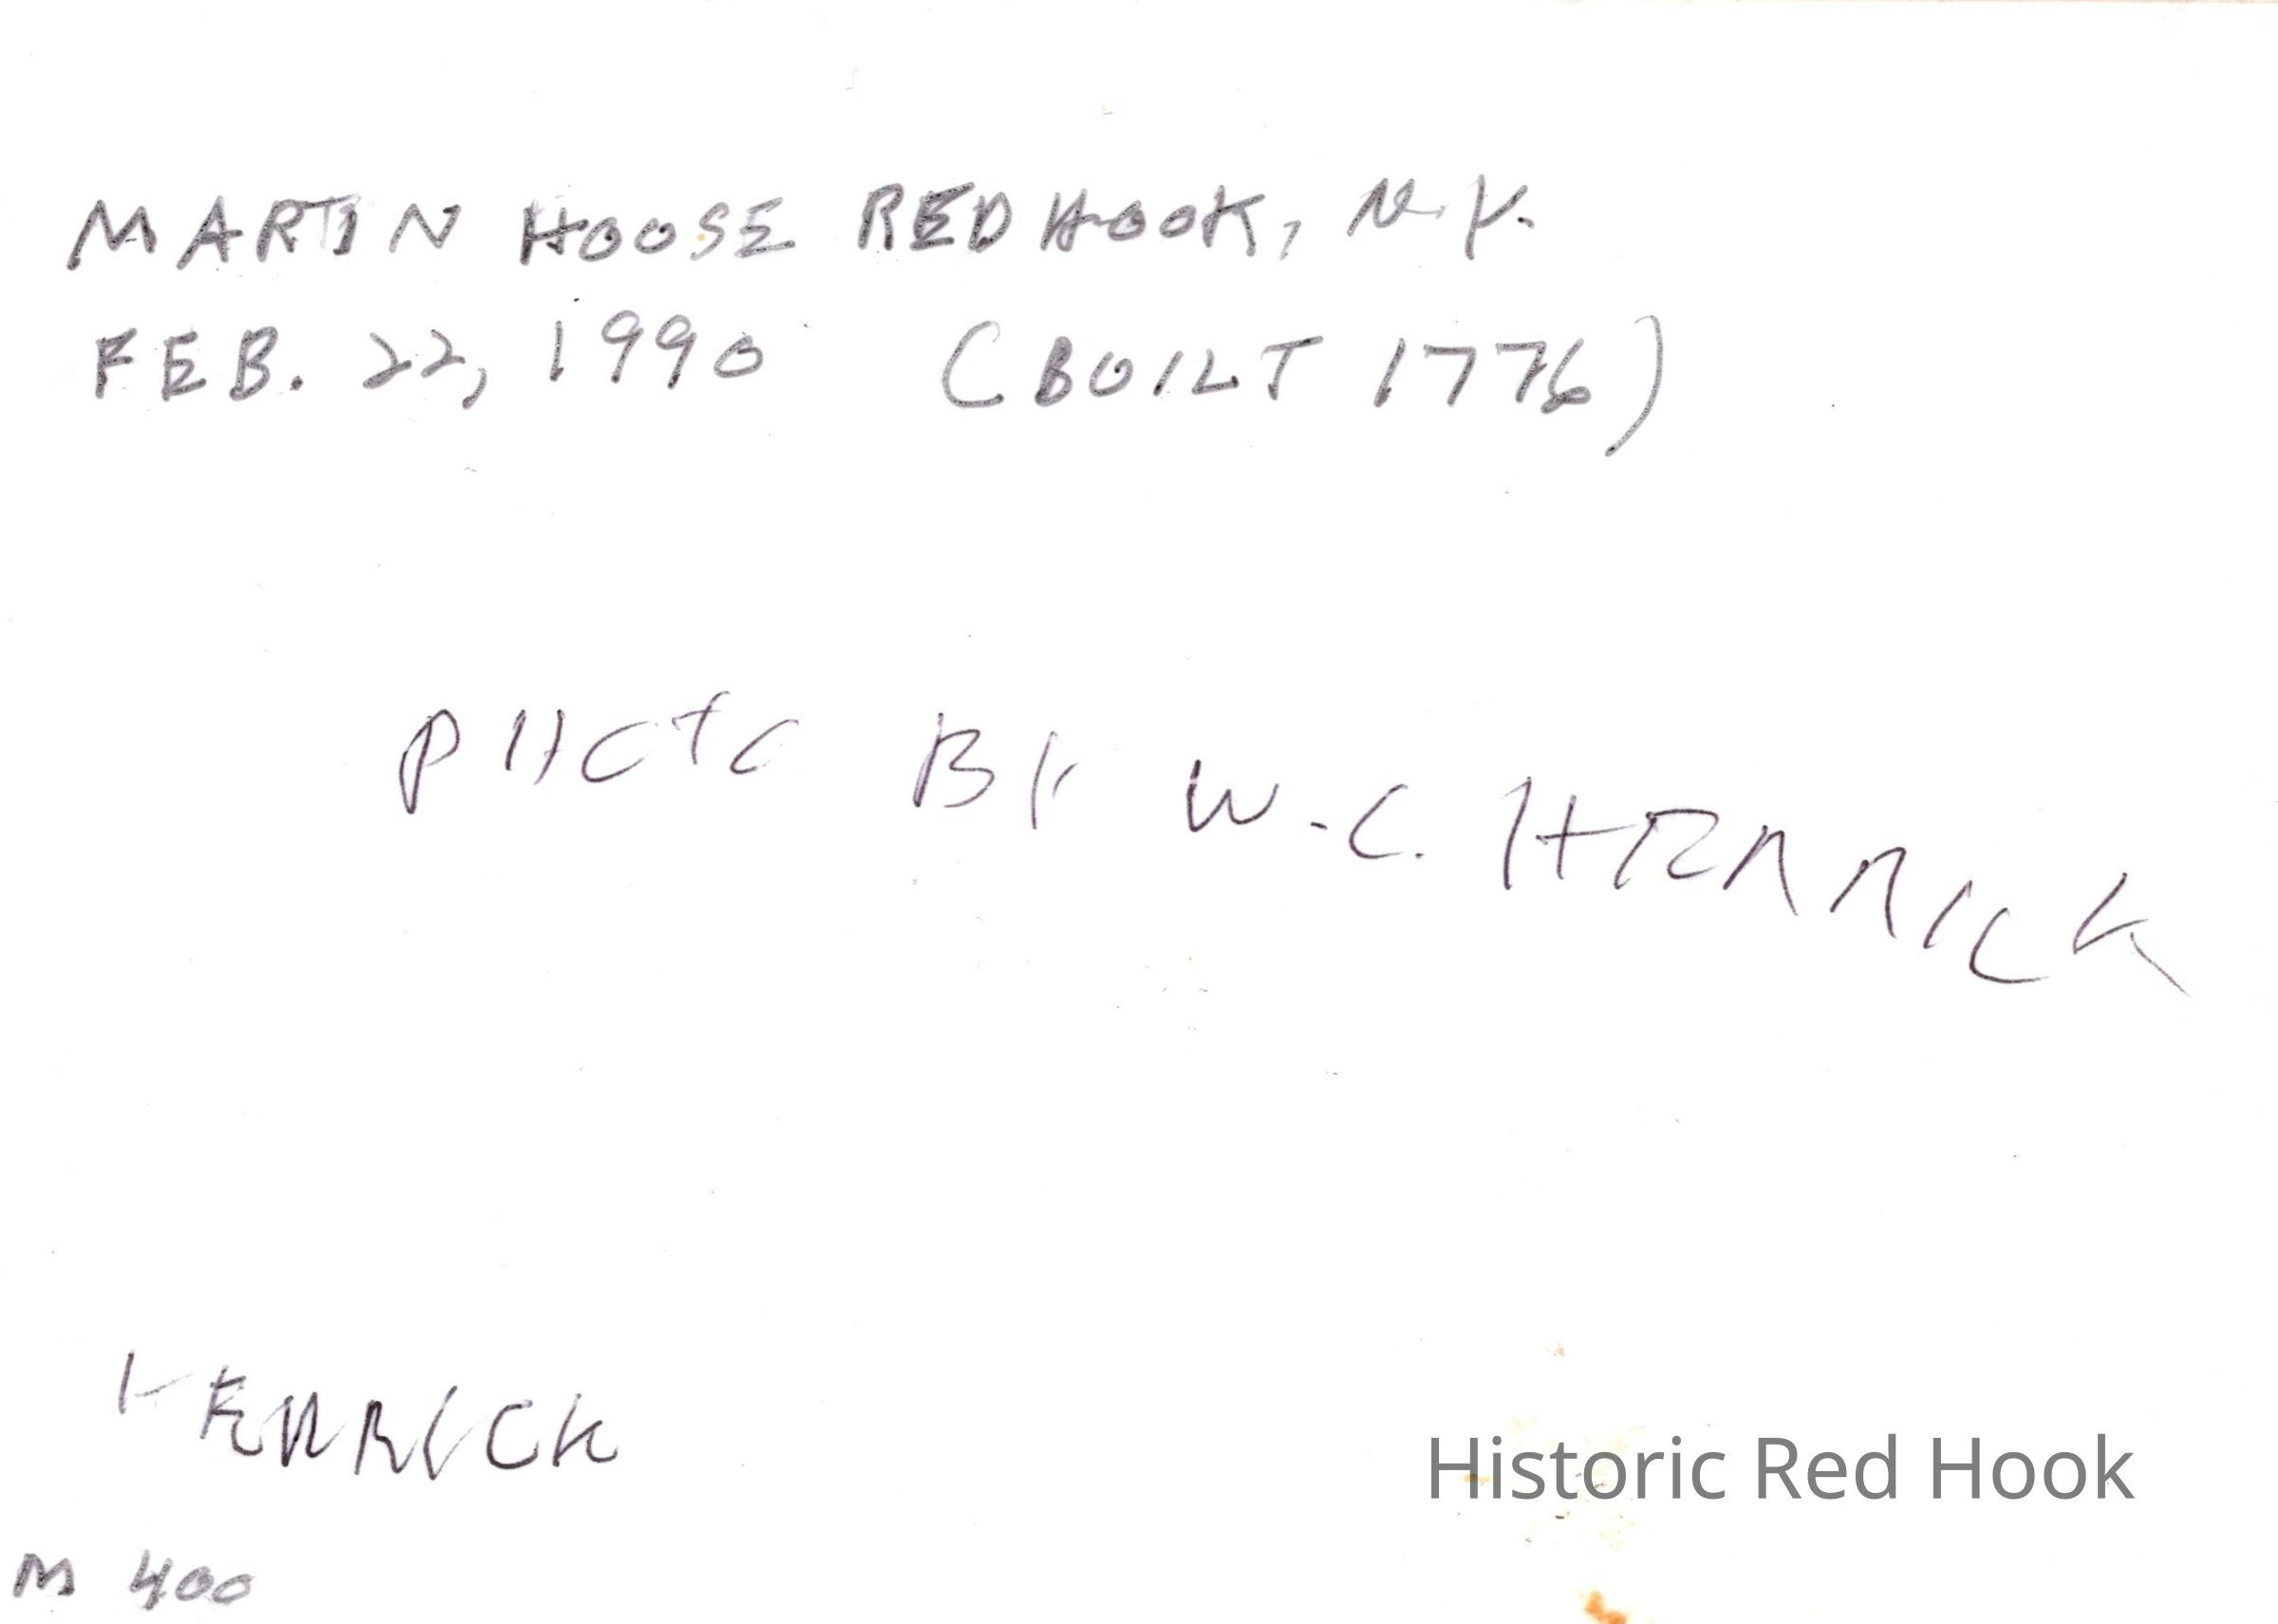 MARTIN HOUSE RED HOOK, N.Y.
FEB. 22, 1990 (BUILT 1776)
PHOTO BY W.C. HERRICK
HERRICK
Historic Red Hook
M 400